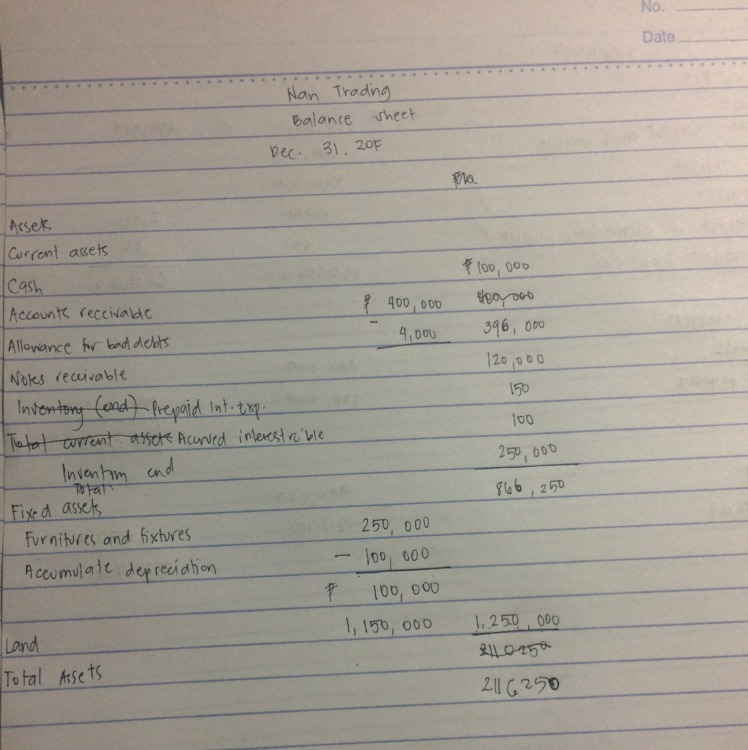 No.
Date
Nan Trading
Balance sheet
Dec. 31, 20F
Assets
Current assets
Cash ₱100,000
Accounts receivable ₱ 400,000 400,000
Allowance for bad debts - 4,000 396,000
Notes receivable 120,000
Inventory (end) Prepaid Int. Exp. 150
Total current assets Accrued interest r'ble 100
Inventory end 250,000
Total: 866,250
Fixed assets
Furnitures and fixtures 250,000
Accumulate depreciation - 100,000
₱ 100,000
Land 1,150,000 1,250,000
2110250
Total Assets 2116250